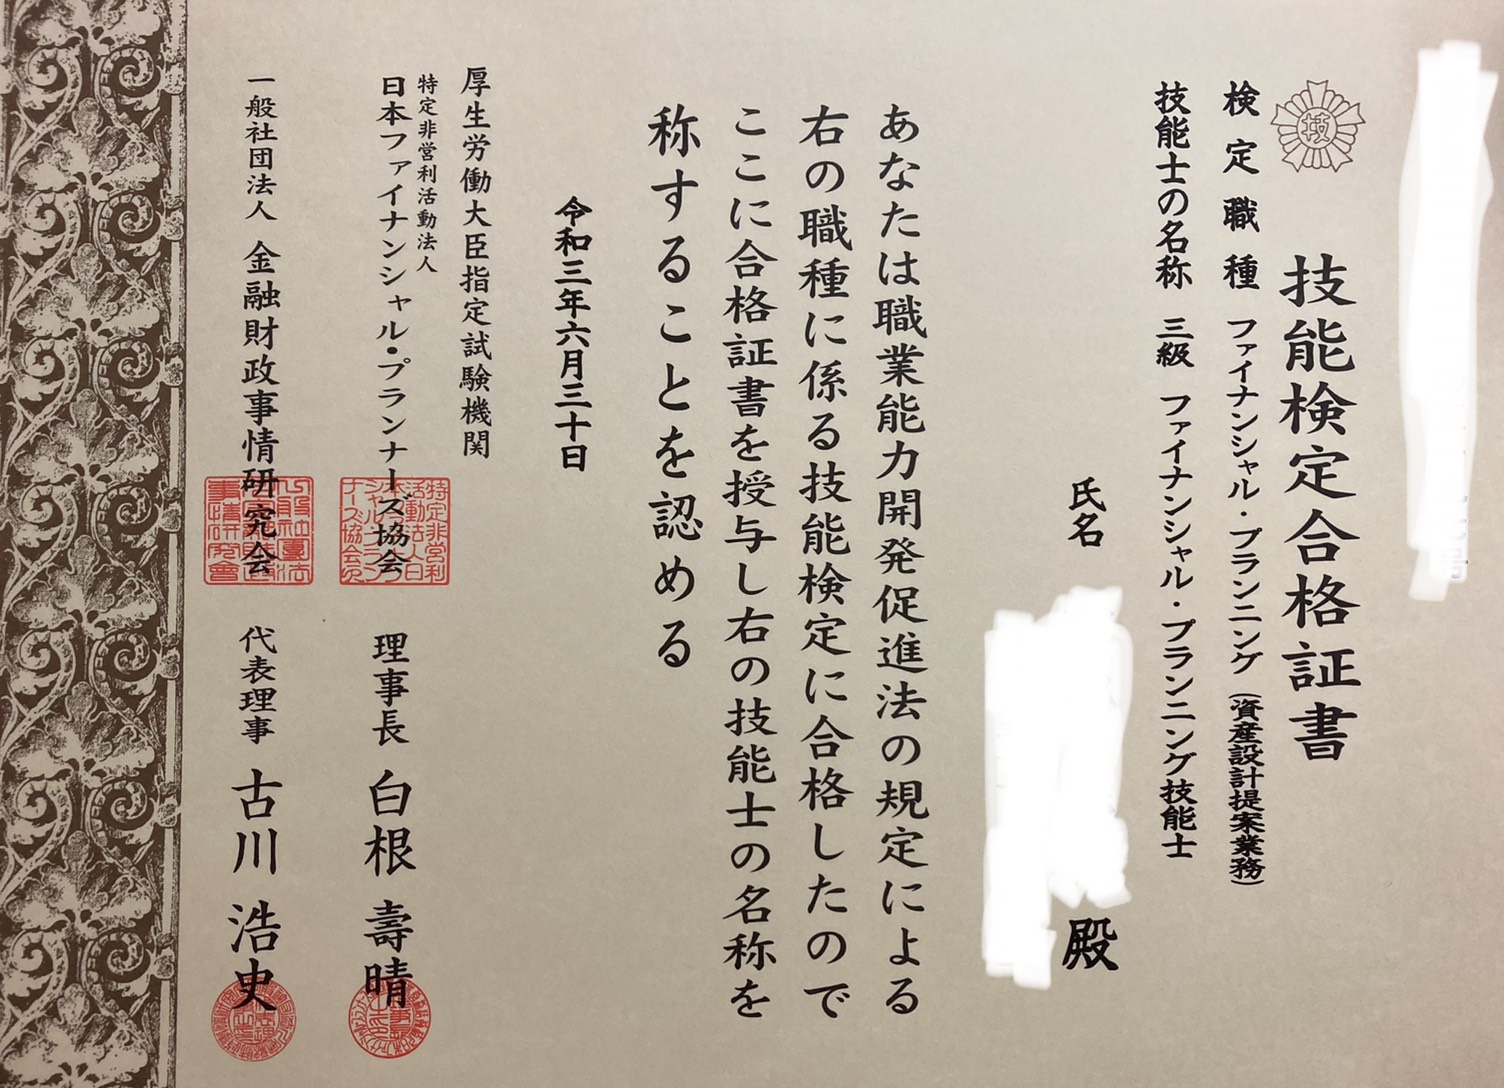 技能検定合格証書
技
検定職種 ファイナンシャル・プランニング(資産設計提案業務)
技能士の名称 三級 ファイナンシャル・プランニング技能士
氏名 殿
あなたは職業能力開発促進法の規定による
右の職種に係る技能検定に合格したので
ここに合格証書を授与し右の技能士の名称を
称することを認める
令和三年六月三十日
厚生労働大臣指定試験機関
特定非営利活動法人
日本ファイナンシャル・プランナーズ協会 理事長 白根壽晴
一般社団法人 金融財政事情研究会 代表理事 古川浩史